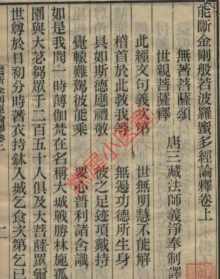 能斷金剛般若波羅蜜多經論釋卷上
無著菩薩頌
世親菩薩釋
唐三藏法師義淨奉制譯
此經文句義次第
世無明慧不能解
稽首於此教我等
無邊功德所生身
具如斯德應禮敬
彼之足跡頂戴持
覺轅難駕彼能乘
要心普利諸含識
如是我聞一時薄伽梵在名稱大城戰勝林施孤
園與大苾芻眾千二百五十人俱及大菩薩眾爾
時世尊於日初分時著衣持鉢入城乞食次第乞已